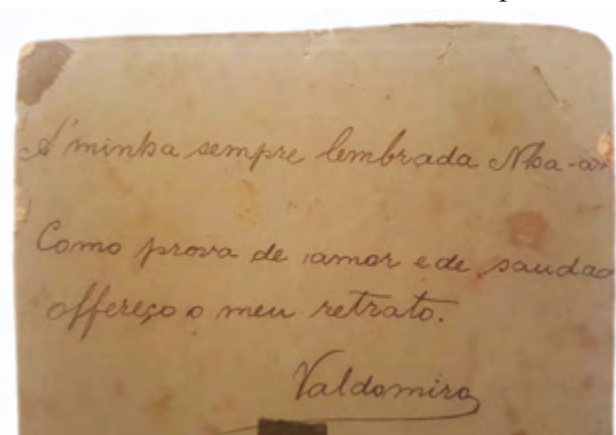 A' minha sempre lembrada Nha-a
Como prova de amor e de saudad
offereço o meu retrato.
Valdomiro